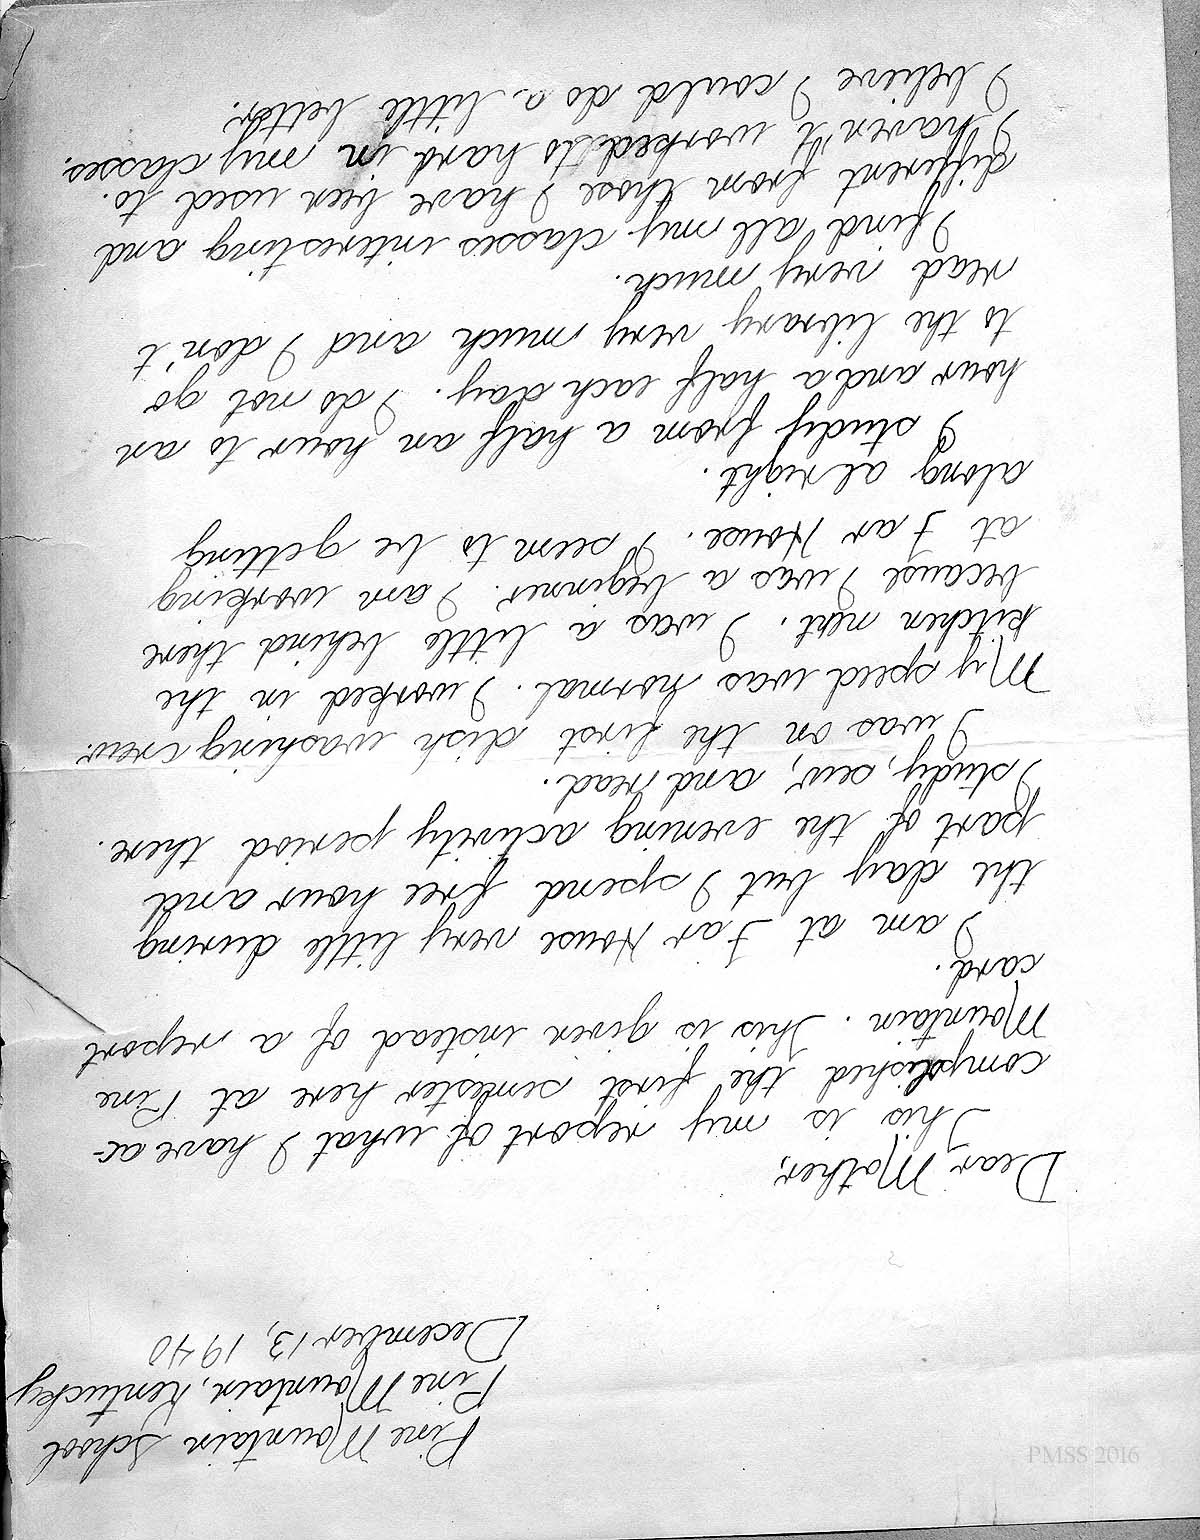 Pine Mountain School
Pine Mountain, Kentucky
December 13, 1940
Dear Mother,
This is my report of what I have ac-
complished the first semester here at Pine
Mountain. This is given instead of a report
card.
I am at Far House very little during
the day but I spend free hour and
part of the evening activity period there.
I study, sew, and read.
I was on the first dish washing crew.
My speed was normal. I worked in the
kitchen next. I was a little behind there
because I was a beginner. I am working
at Far House. I seem to be getting
along alright.
I study from a half an hour to an
hour and a half each day. I do not go
to the library very much and I don't
read very much.
I find all my classes interesting and
different from those I have been used to.
I haven't worked to hard in my classes.
I believe I could do a little better.
PMSS 2016